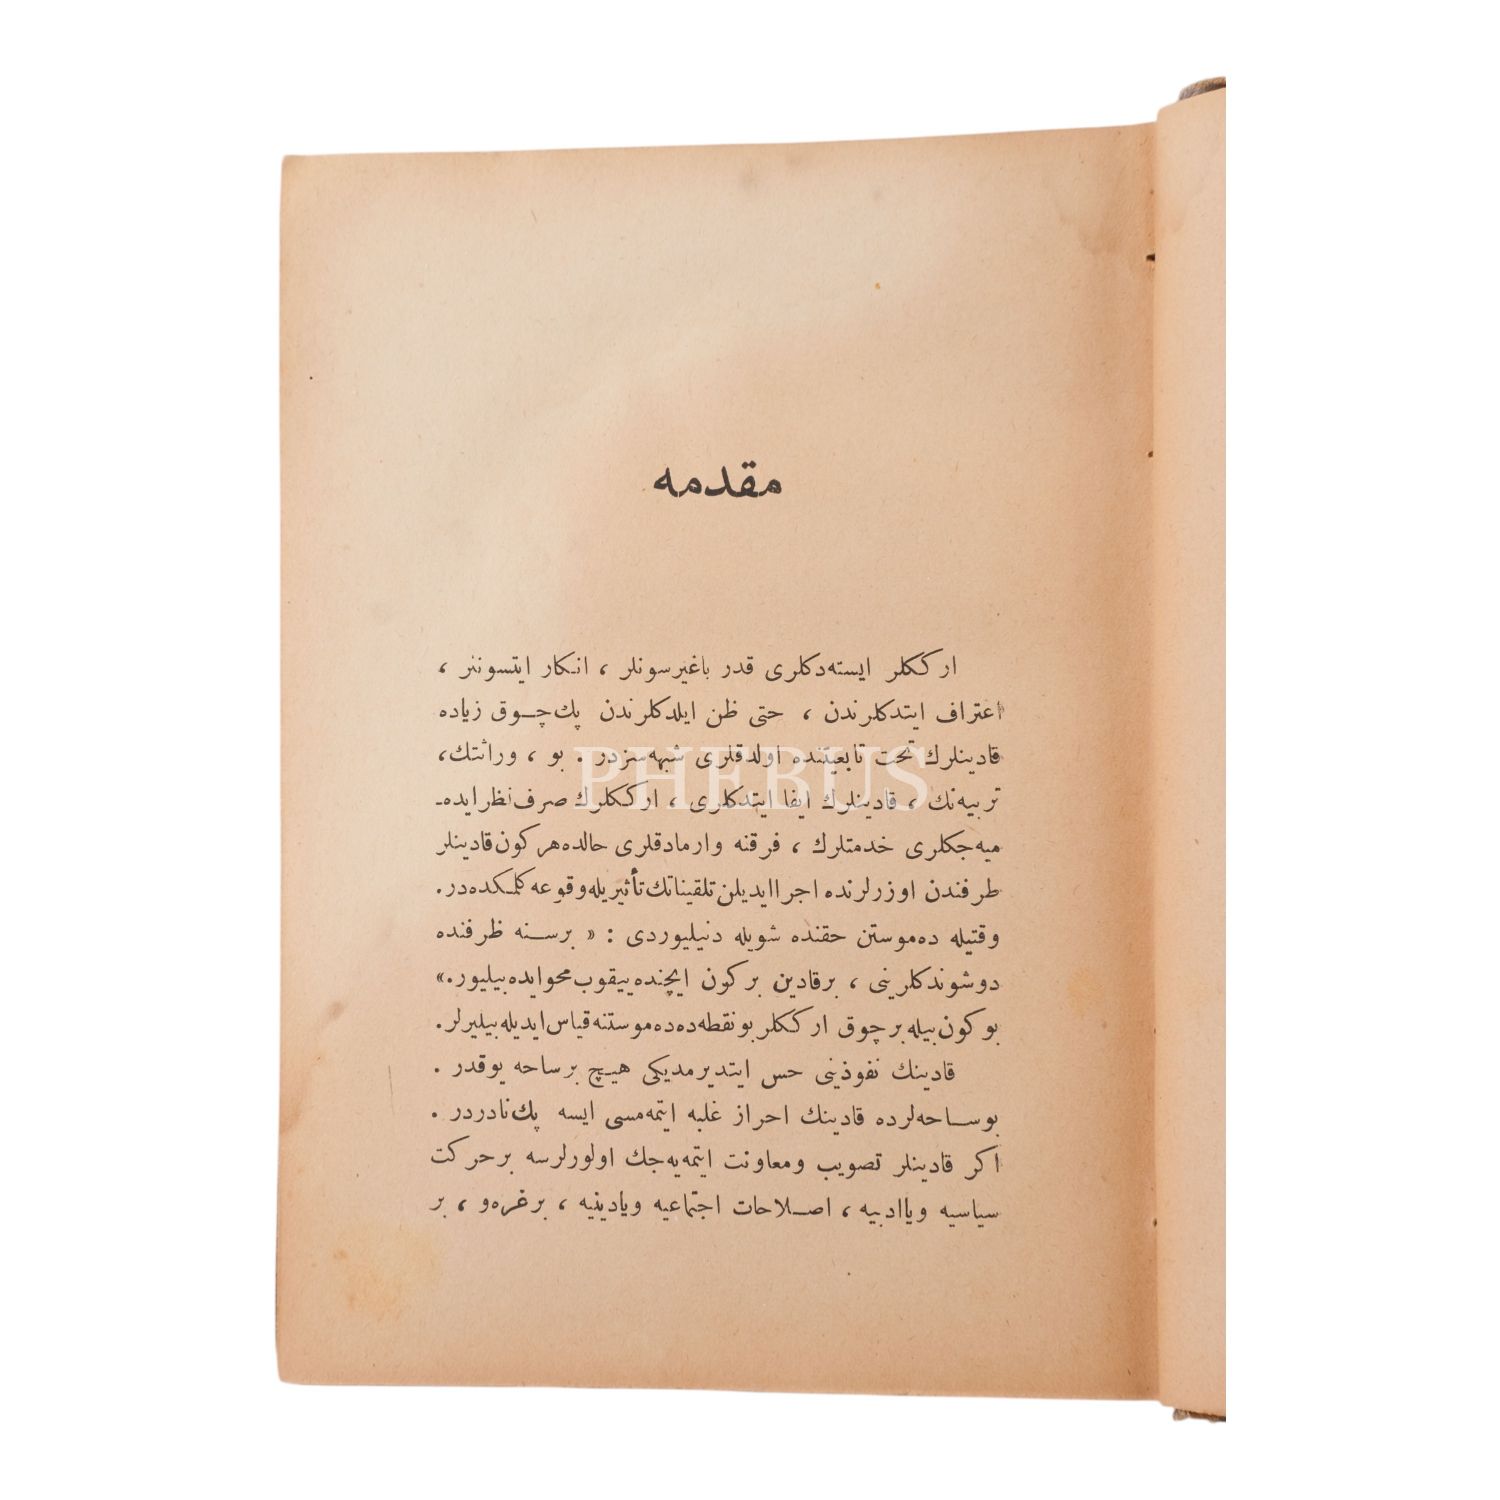 مقدمه
ارككلر ايسته‌دكلرى قدر باغيرسونلر ، انكار ايتسونلر ،
اعتراف ايتدكلرندن ، حتى ظن ايلدكلرندن پك چوق زياده
قادينلرك تحت تابعيتنده اولدقلرى شبهه‌سزدر . بو ، وراثتك ،
تربيه‌نك ، قادينلرك ايفا ايتدكلرى ، ارككلرك صرف نظر ايده‌ـ
ميه‌جكلرى خدمتلرك ، فرقنه وارمادقلرى حالده هركون قادينلر
طرفندن اوزرلرنده اجرا ايديلن تلقيناتك تأثيريله وقوعه كلمكده‌در.
وقتيله ده‌موستن حقنده شويله دنيليوردى : « برسنه ظرفنده
دوشوندكلرينى ، برقادين بركون ايچنده ييقوب محو ايده بيليور.»
بوكون بيله برچوق ارككلر بو نقطه‌ده ده‌موستنه قياس ايديله بيليرلر.
قادينك نفوذينى حس ايتديرمديكى هيچ برساحه يوقدر .
بو ساحه‌لرده قادينك احراز غلبه ايتمه‌مسى ايسه پك نادردر .
اكر قادينلر تصويب ومعاونت ايتمه‌يه‌جك اولورلرسه برحركت
سياسيه ويا ادبيه ، اصلاحات اجتماعيه ويادينيه ، برغره‌و ، بر
PHEBUS